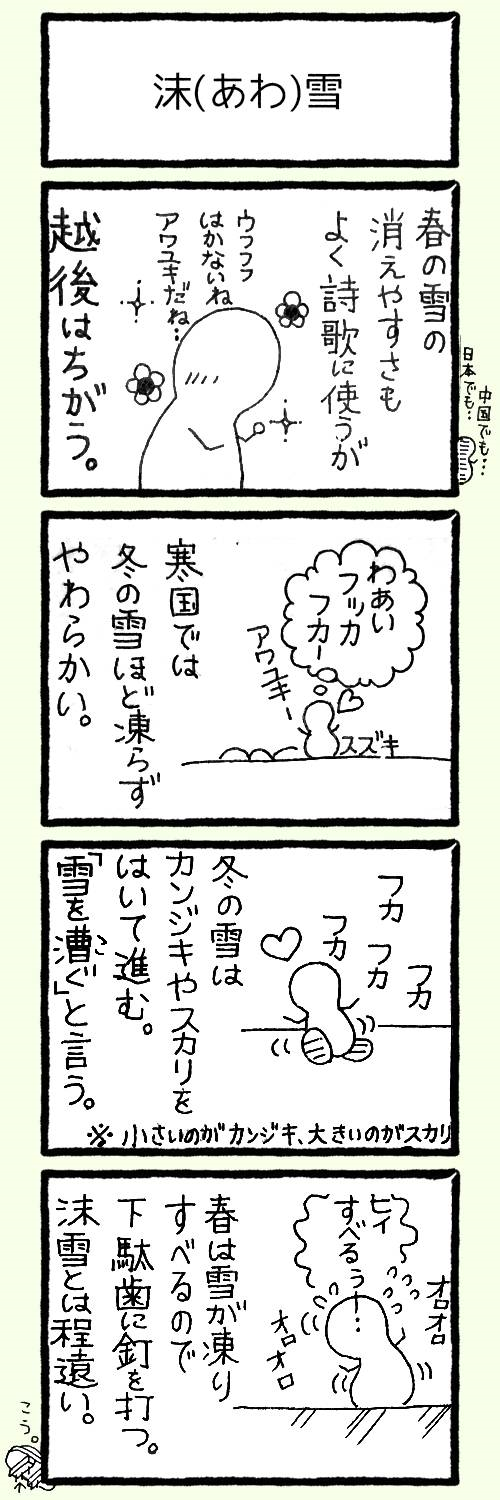 沫(あわ)雪
春の雪の
消えやすさも
よく詩歌に使うが
ウフフフ
はかないね
アワユキだね…
越後はちがう。
中国でも…
日本でも…
わあい
フッカ
フカー
アワユキー
スズキ
寒国では
冬の雪ほど凍らず
やわらかい。
フカ
フカ
フカ
フカ
冬の雪は
カンジキやスカリを
はいて進む。
「雪を漕ぐ」と言う。
こ
※小さいのがカンジキ、大きいのがスカリ
ヒィ
すべるぅー!
オロオロ
オロオロ
春は雪が凍り
すべるので
下駄歯に釘を打つ。
沫雪とは程遠い。
こう。